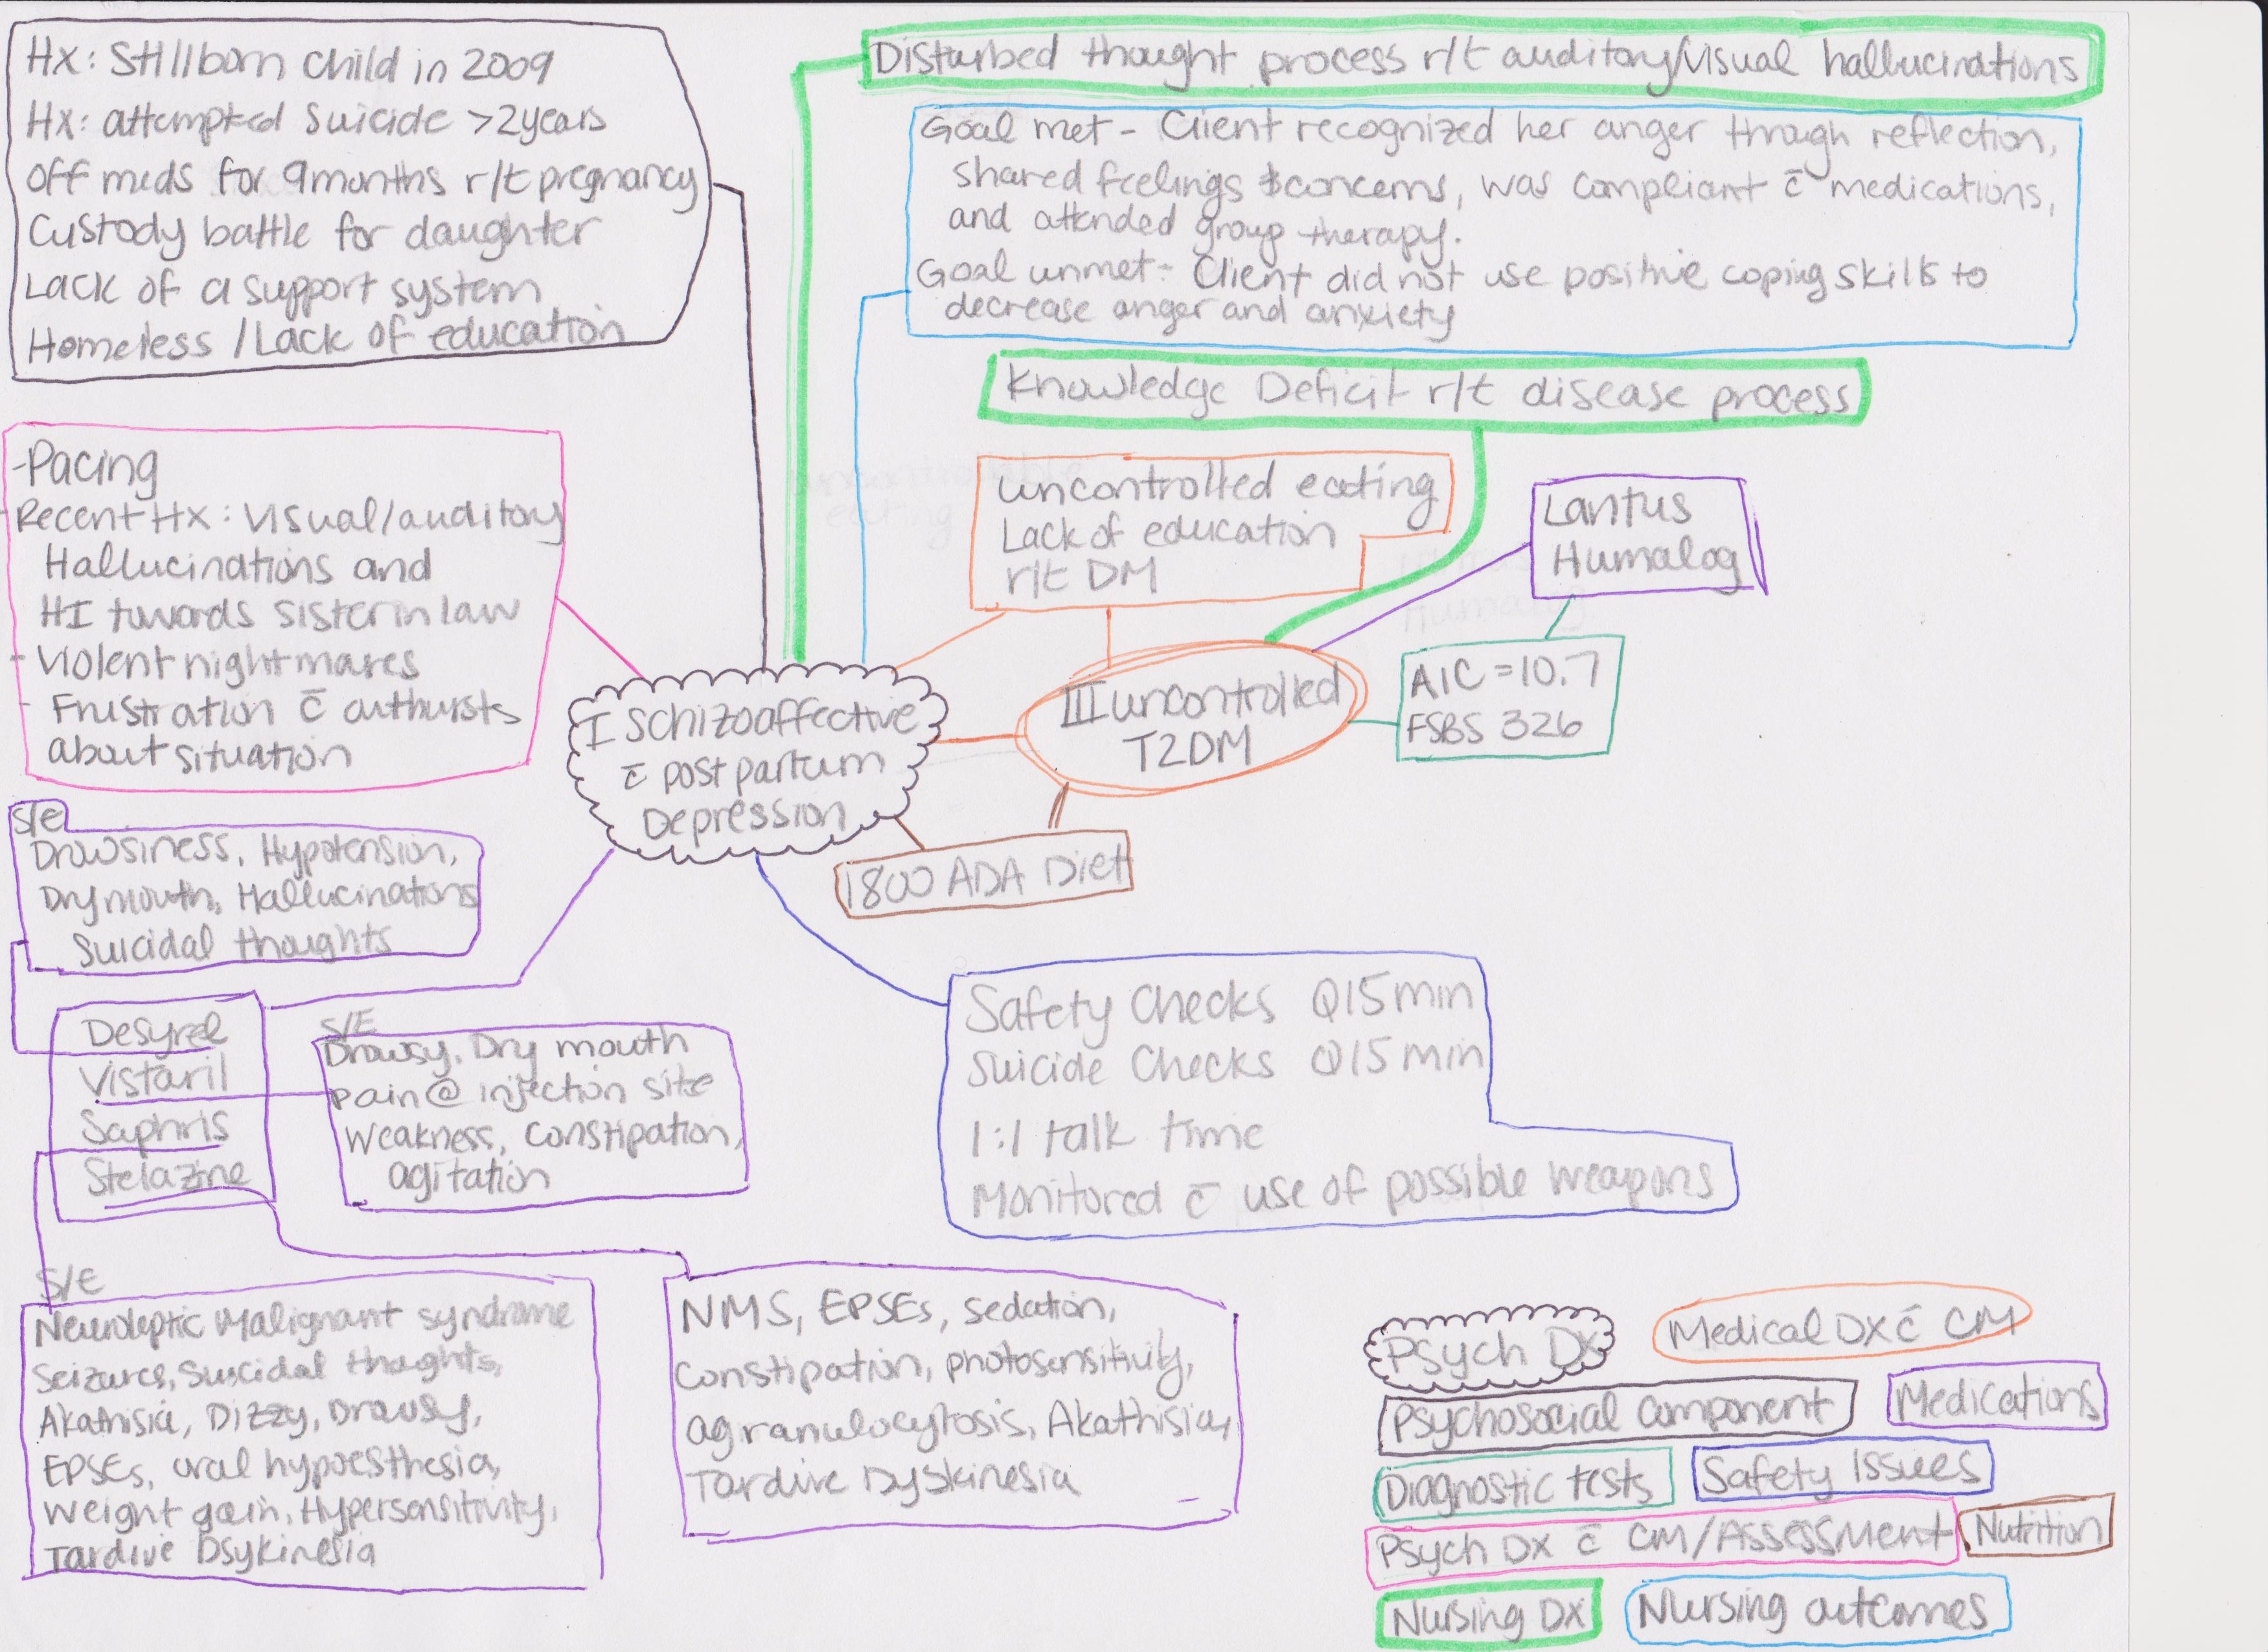 Hx: Stillborn child in 2009
Hx: attempted suicide >2years
Off meds for 9months r/t pregnancy
Custody battle for daughter
Lack of a support system
Homeless / Lack of education
Disturbed thought process r/t auditory/visual hallucinations
Goal met - Client recognized her anger through reflection,
shared feelings & concerns, was compliant c̄ medications,
and attended group therapy.
Goal unmet - Client did not use positive coping skills to
decrease anger and anxiety
Knowledge Deficit r/t disease process
-Pacing
-Recent Hx: Visual/auditory
Hallucinations and
HI towards sister in law
-Violent nightmares
-Frustration c̄ outbursts
about situation
uncontrolled eating
Lack of education
r/t DM
Lantus
Humalog
A1C = 10.7
FSBS 326
I Schizoaffective
c̄ post partum
Depression
III uncontrolled
T2DM
1800 ADA Diet
S/e
Drowsiness, Hypotension,
Dry mouth, Hallucinations
Suicidal thoughts
Desyrel
Vistaril
Saphris
Stelazine
S/E
Drowsy, Dry mouth
pain @ injection site
Weakness, constipation,
agitation
Safety Checks Q15min
Suicide Checks Q15min
1:1 talk time
Monitored c̄ use of possible weapons
S/E
Neuroleptic Malignant syndrome
Seizures, Suicidal thoughts,
Akathisia, Dizzy, Drowsy,
EPSEs, oral hypoesthesia,
Weight gain, Hypersensitivity,
Tardive Dsykinesia
NMS, EPSEs, sedation,
Constipation, photosensitivity,
agranulocytosis, Akathisia,
Tardive Dyskinesia
Psych Dx
Medical DX c̄ CM
Psychosocial Component
Medications
Diagnostic tests
Safety Issues
Psych Dx c̄ CM/Assessment
Nutrition
Nursing Dx
Nursing outcomes